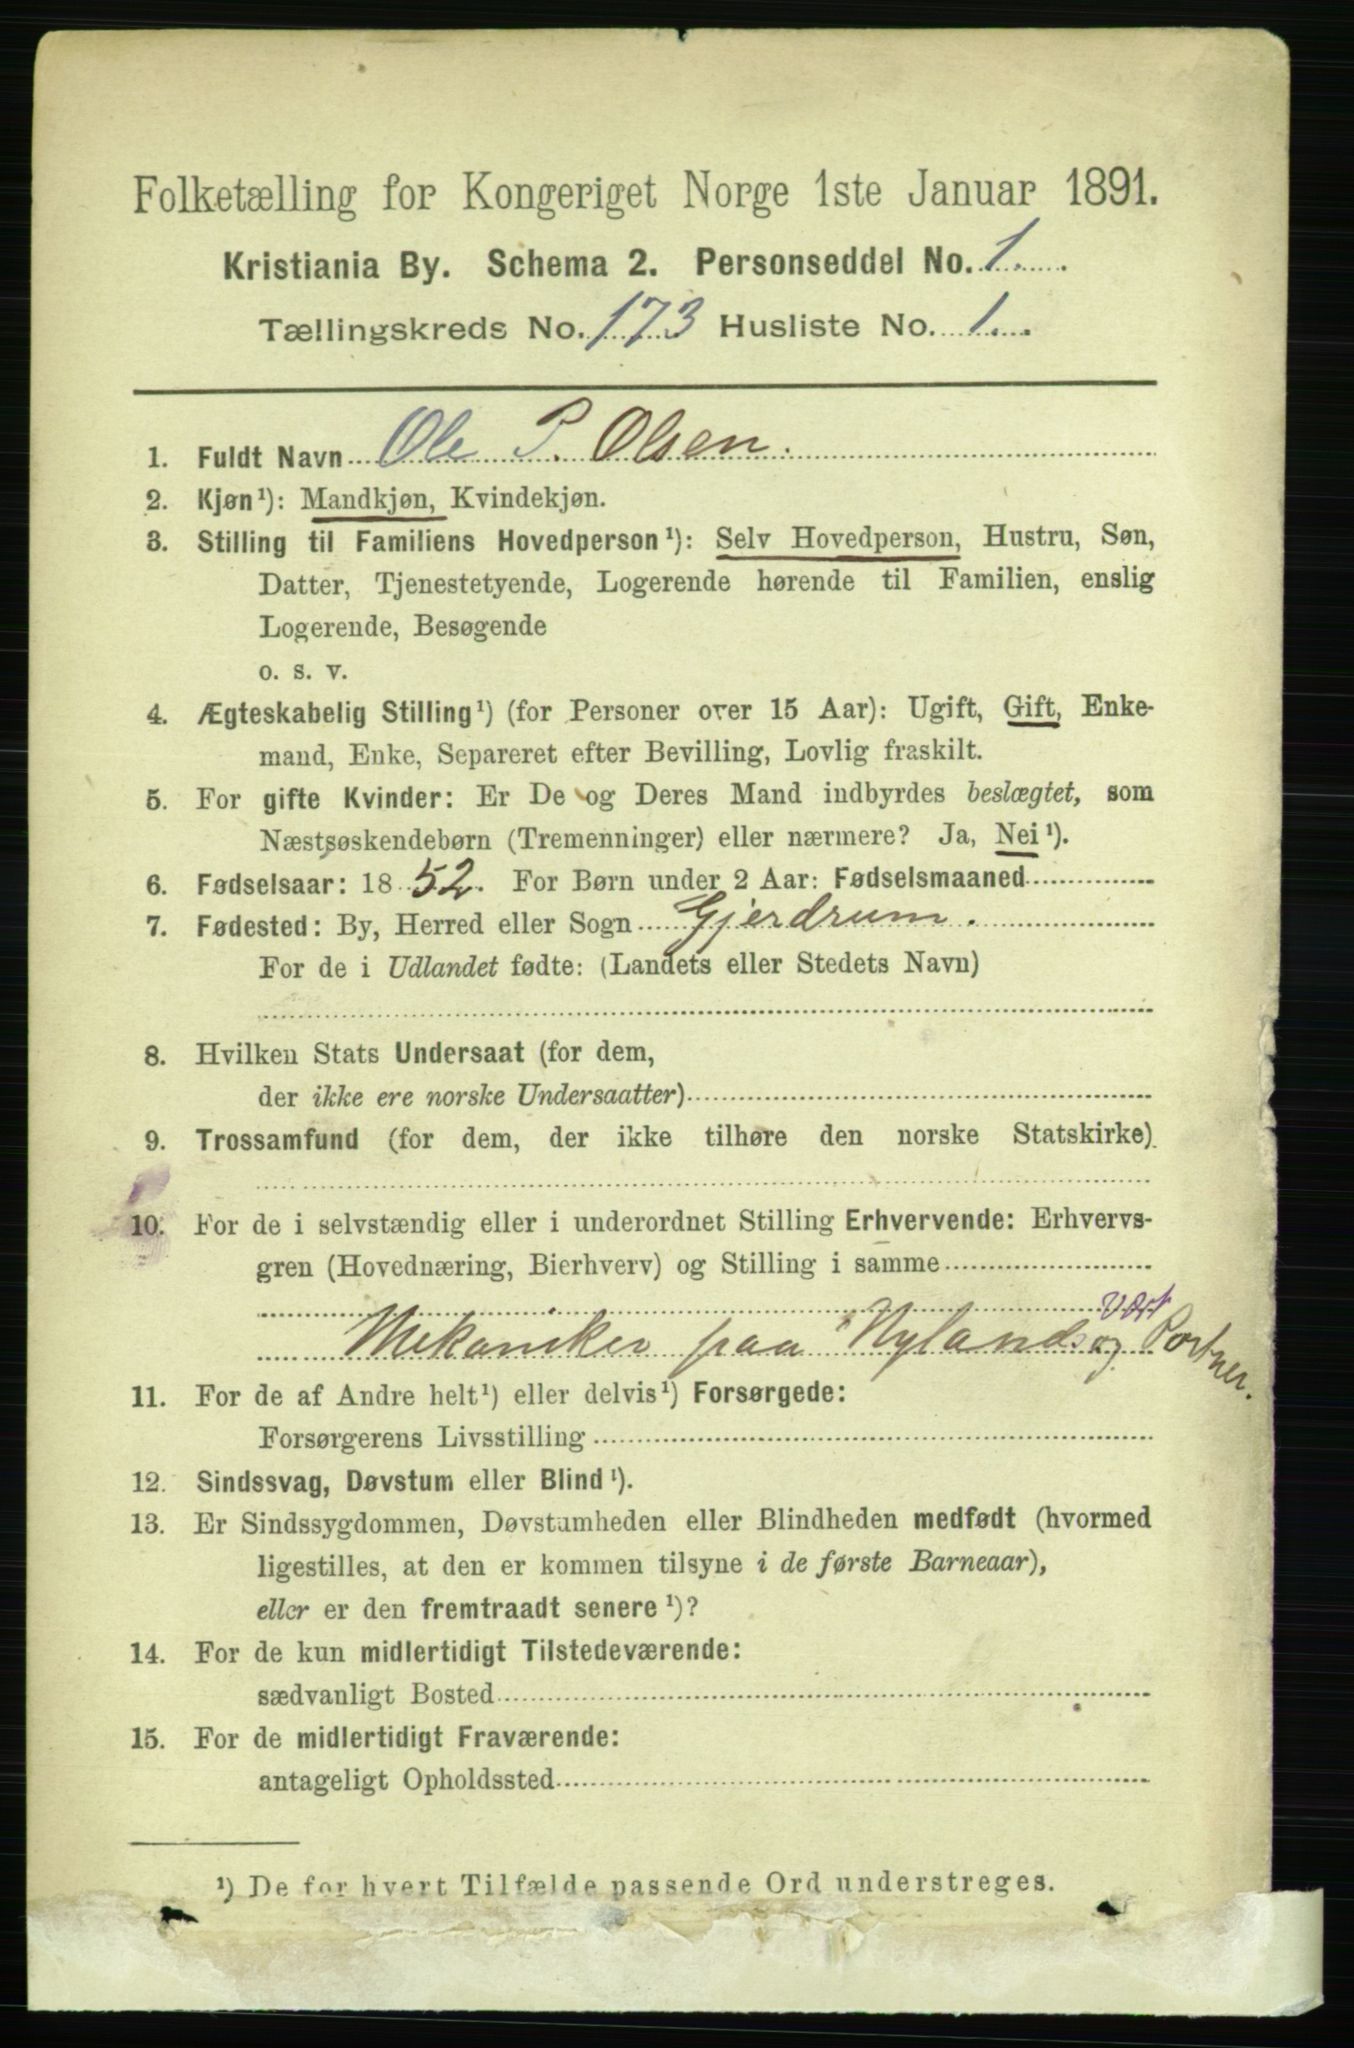 Folketælling for Kongeriget Norge 1ste Januar 1891.
Kristiania By. Schema 2. Personseddel No. 1.
Tællingskreds No. 173 Husliste No. 1.
1. Fuldt Navn Ole P. Olsen.
2. Kjøn¹): Mandkjøn, Kvindekjøn.
3. Stilling til Familiens Hovedperson¹): Selv Hovedperson, Hustru, Søn,
Datter, Tjenestetyende, Logerende hørende til Familien, enslig
Logerende, Besøgende
o. s. v.
4. Ægteskabelig Stilling¹) (for Personer over 15 Aar): Ugift, Gift, Enke-
mand, Enke, Separeret efter Bevilling, Lovlig fraskilt.
5. For gifte Kvinder: Er De og Deres Mand indbyrdes beslægtet, som
Næstsøskendebørn (Tremenninger) eller nærmere? Ja, Nei¹).
6. Fødselsaar: 1852. For Børn under 2 Aar: Fødselsmaaned
7. Fødested: By, Herred eller Sogn Gjerdrum.
For de i Udlandet fødte: (Landets eller Stedets Navn)
8. Hvilken Stats Undersaat (for dem,
der ikke ere norske Undersaatter)
9. Trossamfund (for dem, der ikke tilhøre den norske Statskirke)
10. For de i selvstændig eller i underordnet Stilling Erhvervende: Erhvervs-
gren (Hovednæring, Bierhverv) og Stilling i samme
værk
Mekaniker paa Nylands og Portner.
11. For de af Andre helt¹) eller delvis¹) Forsørgede:
Forsørgerens Livsstilling
12. Sindssvag, Døvstum eller Blind¹).
13. Er Sindssygdommen, Døvstumheden eller Blindheden medfødt (hvormed
ligestilles, at den er kommen tilsyne i de første Barneaar),
eller er den fremtraadt senere¹)?
14. For de kun midlertidigt Tilstedeværende:
sædvanligt Bosted
15. For de midlertidigt Fraværende:
antageligt Opholdssted
¹) De for hvert Tilfælde passende Ord understreges.